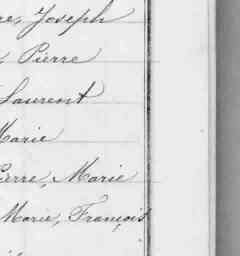 Joseph
Pierre
Laurent
Marie
Pierre, Marie
Marie, François